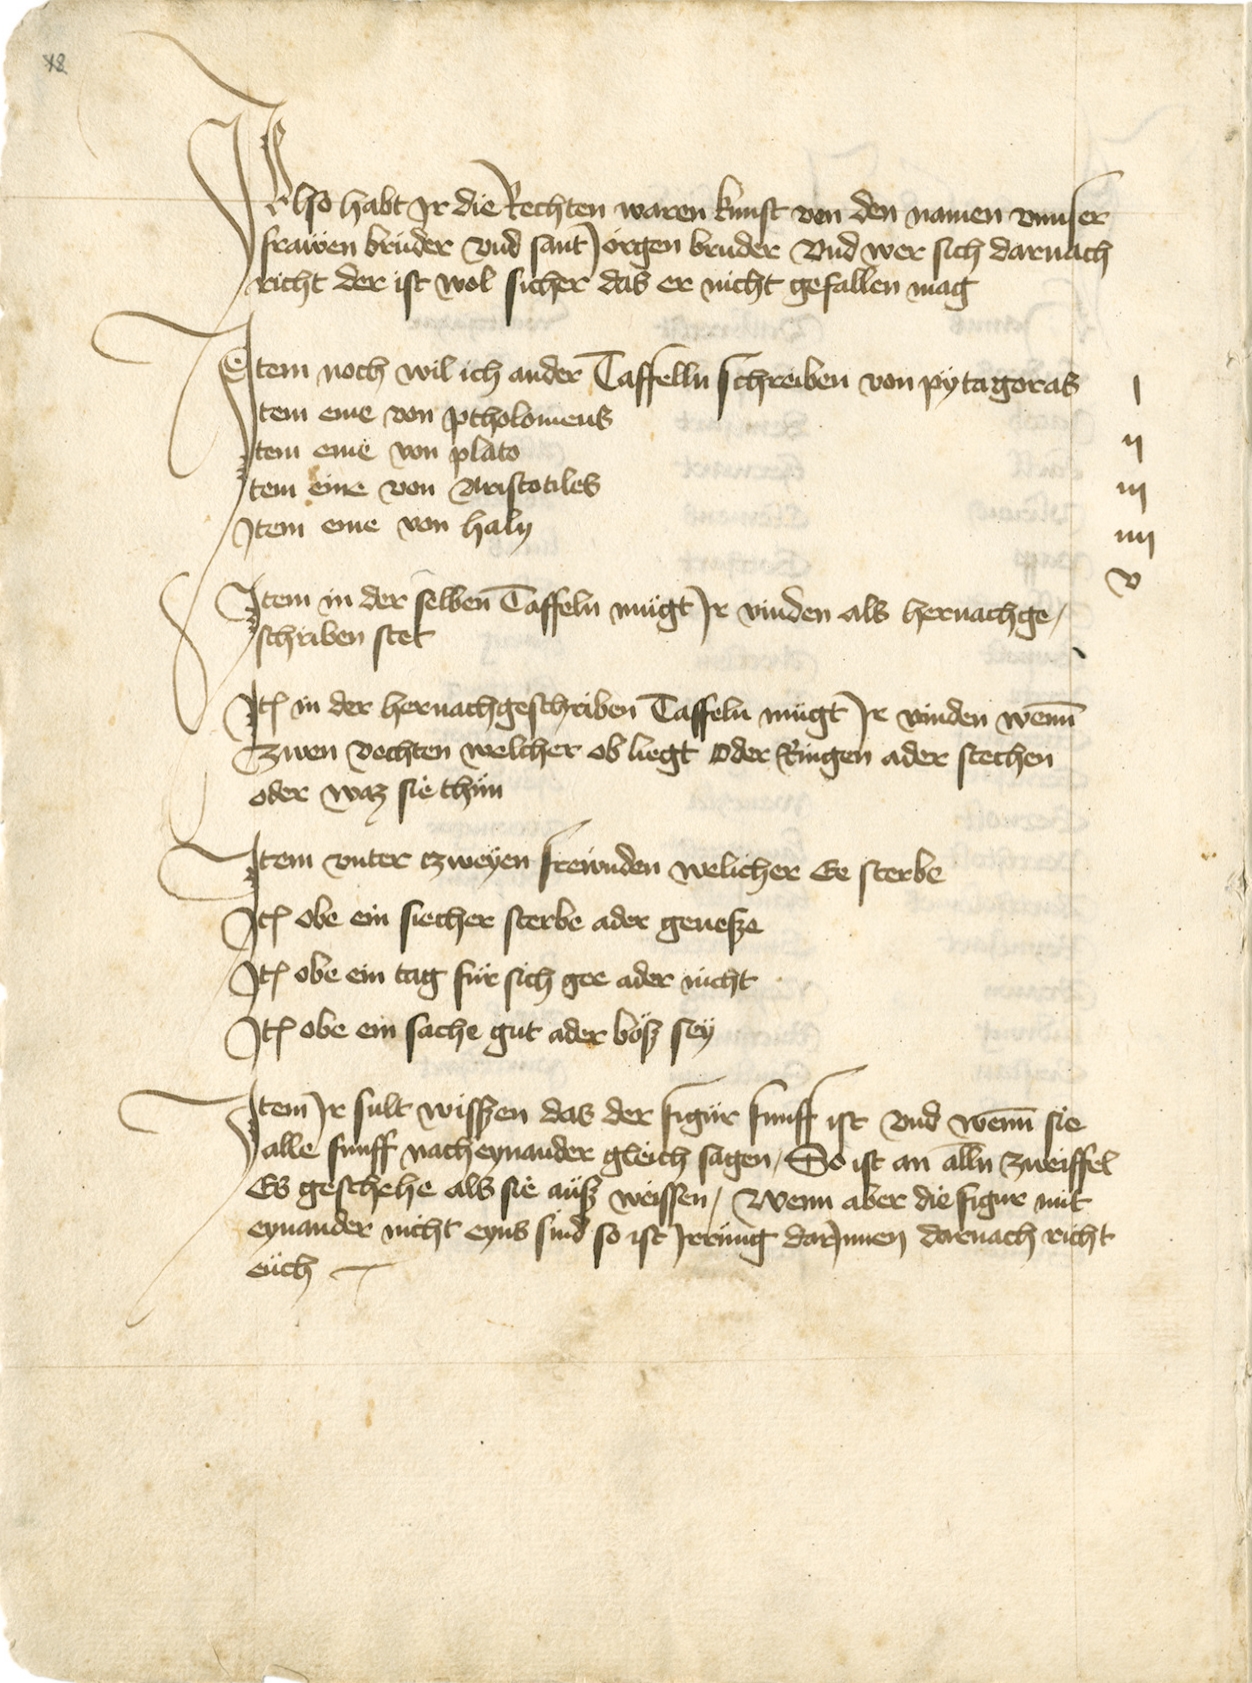 x8
Also habt Ir die Rechten waren kunst von den namen vnnser
frawen bruder vnd sant Jörgen bruder Vnd wer sich darnach
richt der ist wol sicher das er nicht gefallen mag
Item noch wil ich ander Taffelln schreiben von pytagoras I
Item eine von ptholomeus II
Item eine von plato III
Item eine von Aristotiles IIII
Item eine von haly V
Item in der selben Taffeln mügt Ir vinden als hernachge/
schriben stet
Itē in der hernachgeschriben Taffeln mügt Ir vinden wenn̄
Zwen vechten welcher ob liegt oder Ringen ader stechen
oder waz sie thün
Item vnter czweÿen freẅnden welicher Ee sterbe
Itē obe ein siecher sterbe ader genesze
Itē obe ein tag für sich gee ader nicht
Itē obe ein sache gut ader bösz seÿ
Item Ir sult wisszen das der figür funff ist vnd wenn̄ sie
alle funff nach eynander gleich sagen / So ist an alln̄ zweiffel
Es geschehe als sie aüsz weissen / Wenn aber die figur mit
eynander nicht eyns sind so ist Irrüng darInnen darnach richt
eüch